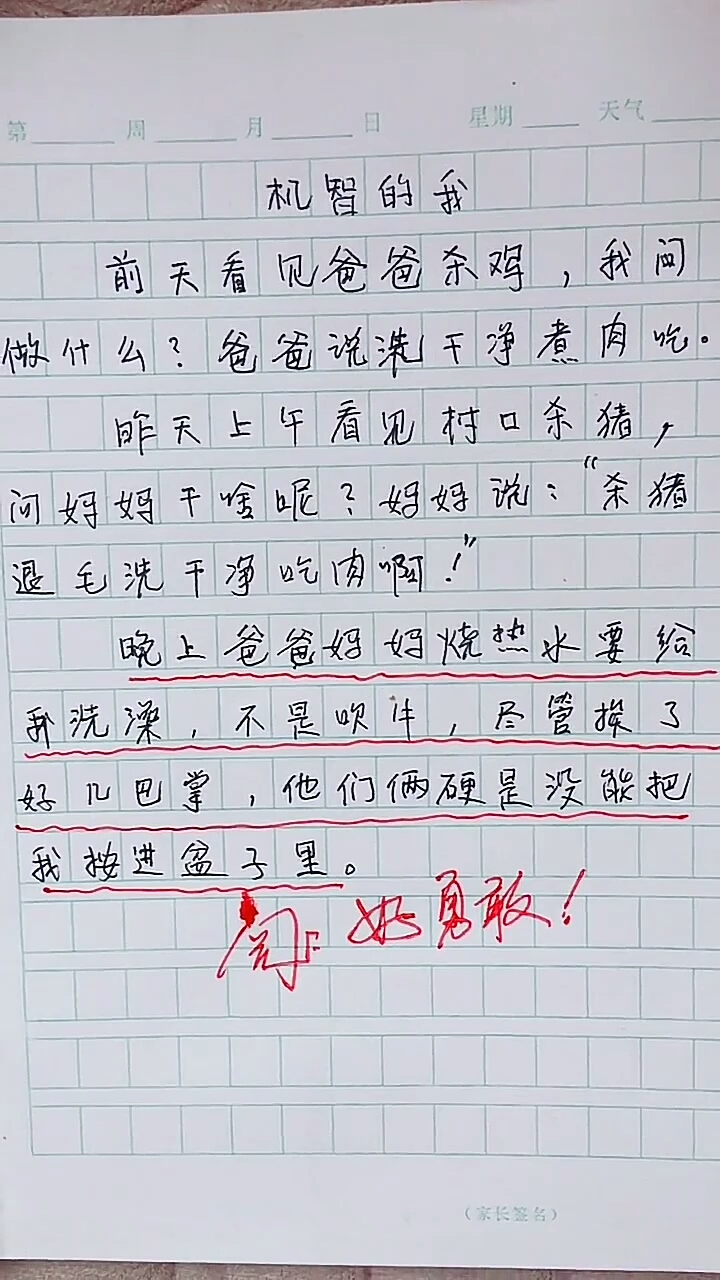 第 周 月 日 星期 天气
机智的我
前天看见爸爸杀鸡，我问
做什么？爸爸说洗干净煮肉吃。
昨天上午看见村口杀猪，
问妈妈干啥呢？妈妈说：“杀猪
退毛洗干净吃肉啊！”
晚上爸爸妈妈烧热水要给
我洗澡，不是吹牛，尽管挨了
好几巴掌，他们俩硬是没能把
我按进盆子里。
好勇敢！
（家长签名）